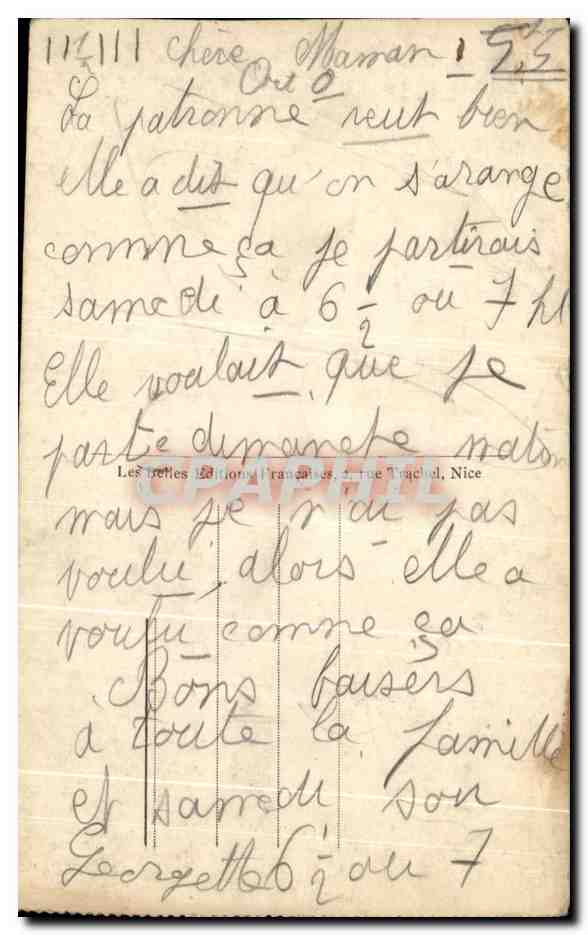 chère Maman 5,5
Ort 0
La patronne veut bien
elle a dit qu'on s'arange
comme ça je partirais
samedi à 6 1/2 ou 7 h
Elle voulait que je
parte dimanche matin
Les Belles Editions Françaises, 2, rue Trachel, Nice
CPAPHIL
mais je n'ai pas
voulu, alors elle a
voulu comme ça
Bons baisers
à toute la famille
et samedi soir
Georgette 6 1/2 ou 7